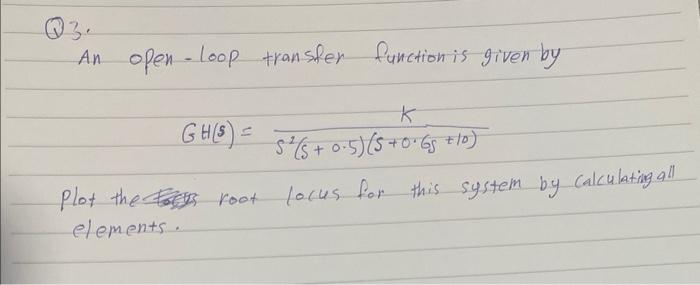 Q3.
An open-loop transfer function is given by
GH(s) = K / s²(s + 0.5)(s + 0.6s + 10)
Plot the root locus for this system by calculating all
elements.